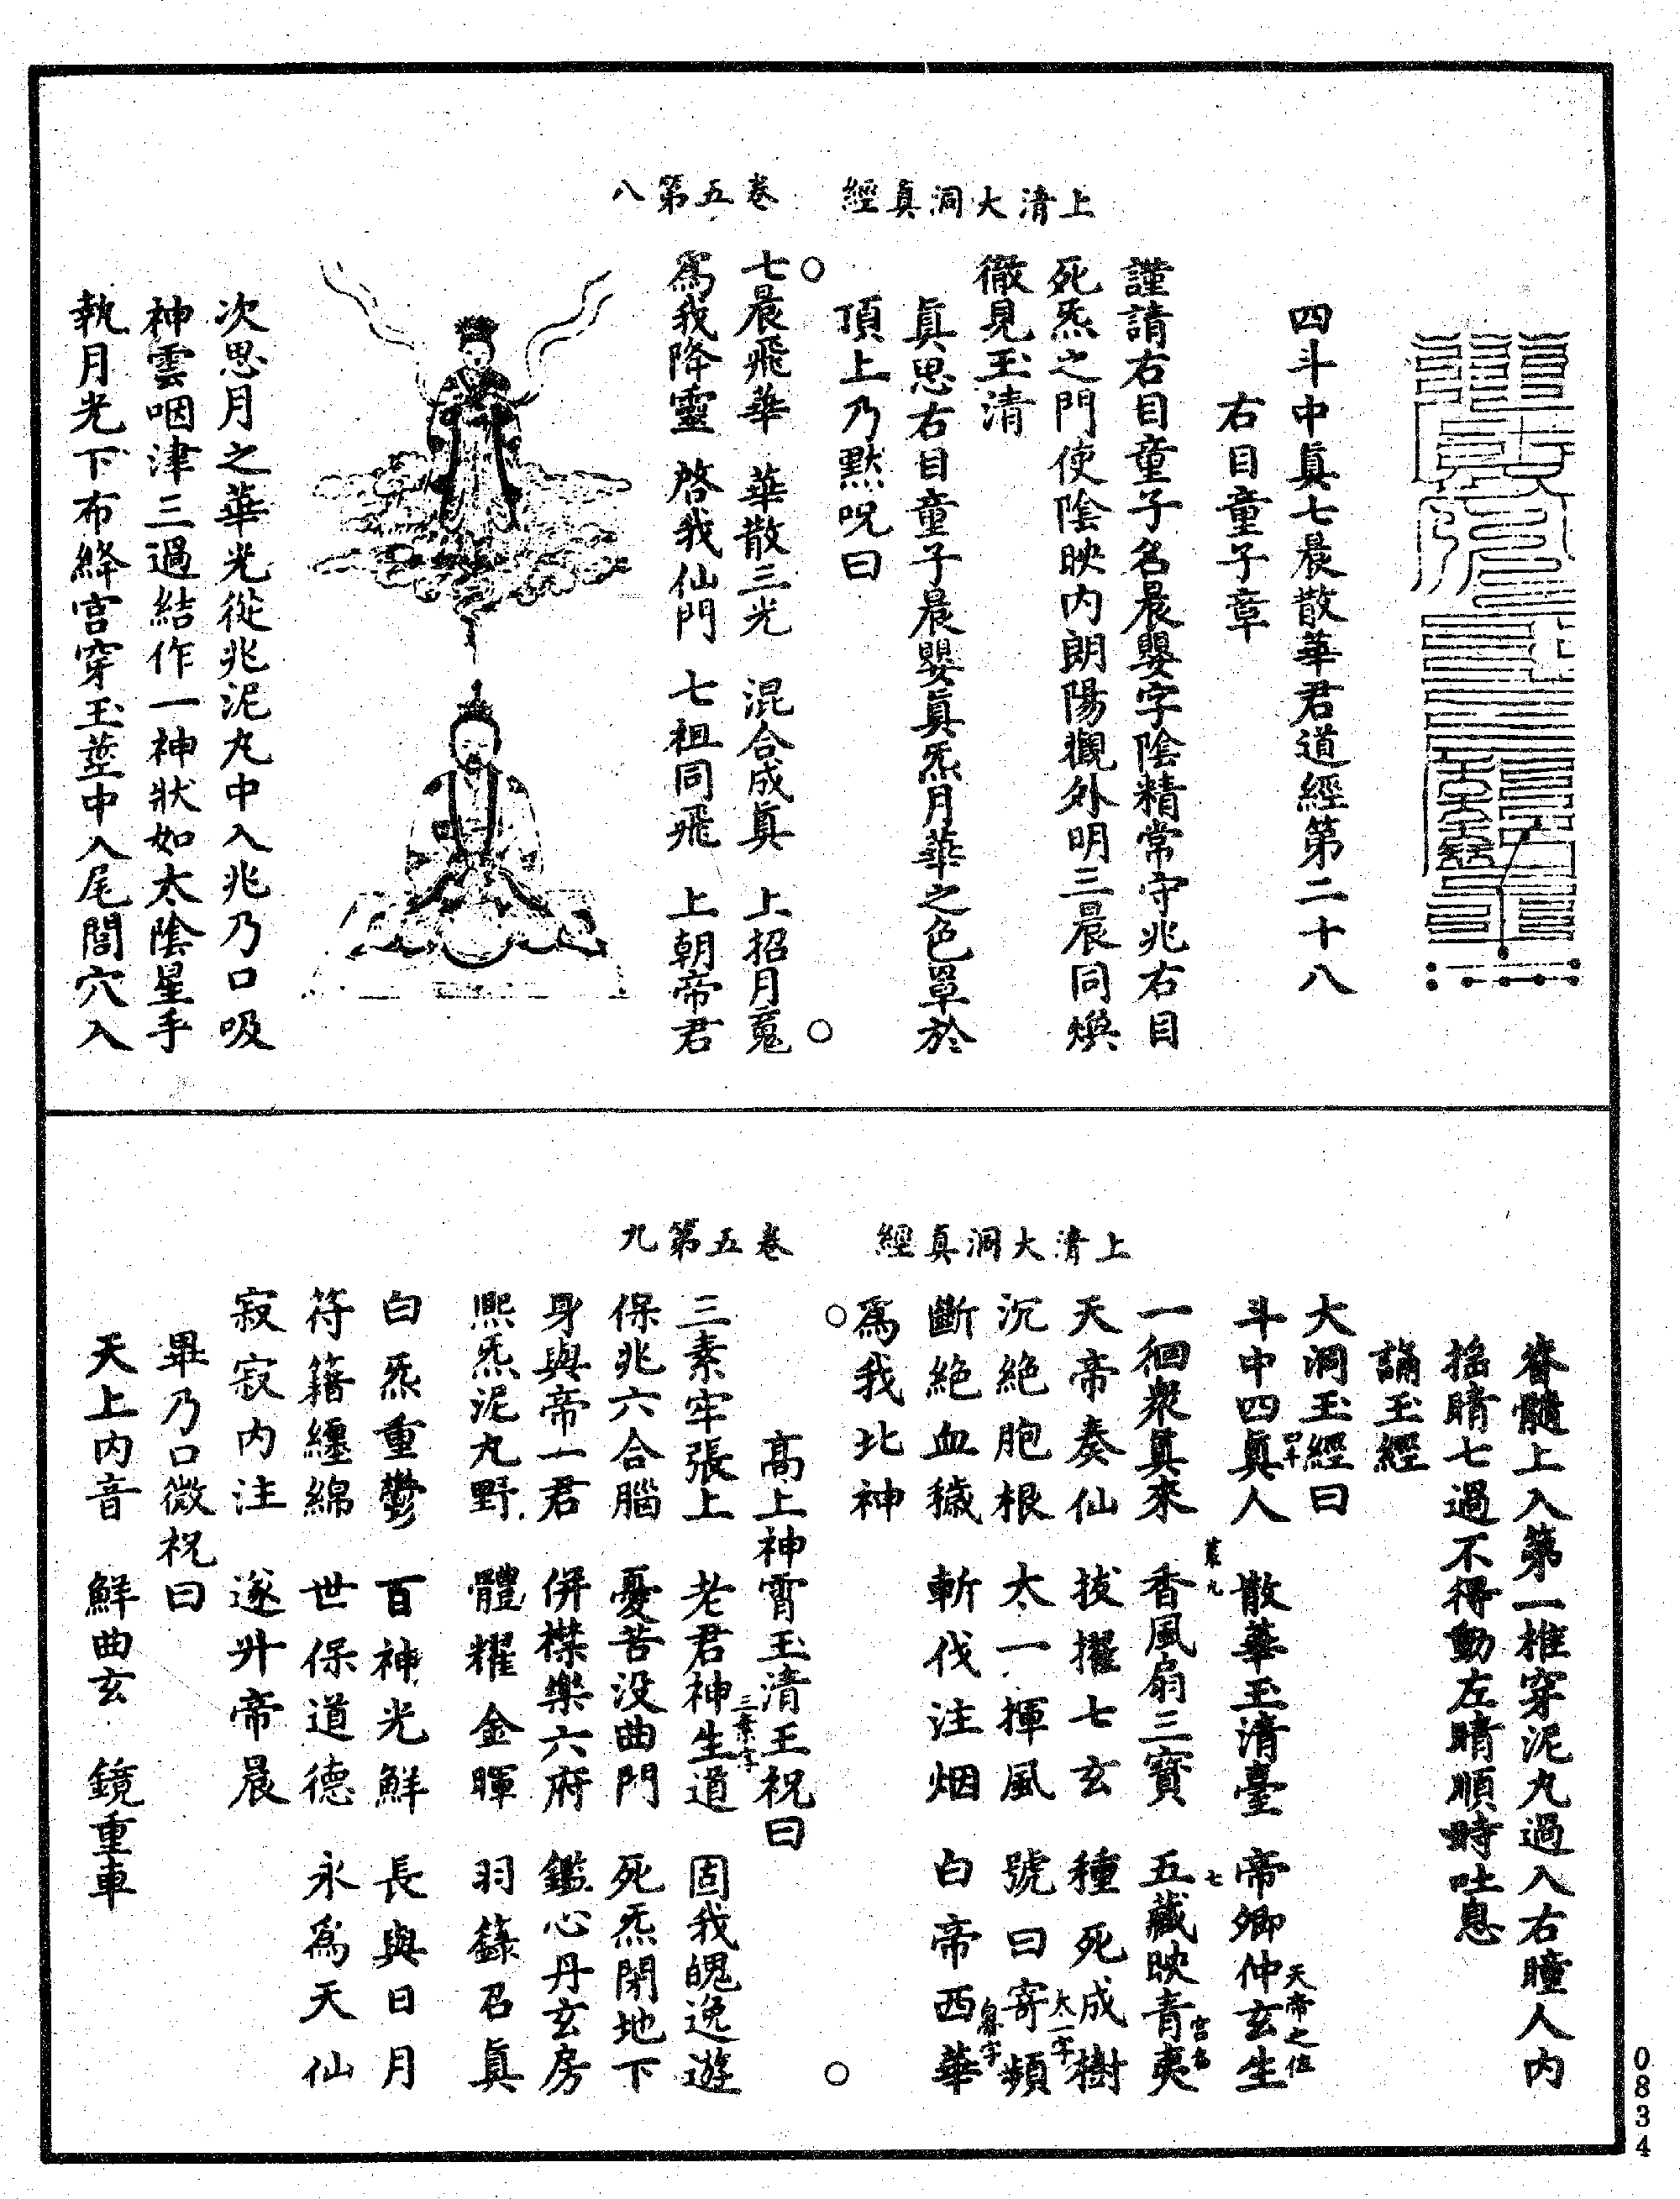 四斗中眞七晨散華君道經第二十八
右目童子章
謹請右目童子名晨嬰字陰精常守兆右目
死炁之門使陰映内朗陽觀外明三晨同煥
徹見玉清
眞思右目童子晨嬰眞炁月華之色罩於
頂上乃默呪曰
上清大洞真經　卷五第八
七晨飛華　華散三光　混合成眞　上招月䰟
爲我降靈　啓我仙門　七祖同飛　上朝帝君
次思月之華光從兆泥丸中入兆乃口吸
神雲咽津三過結作一神狀如太陰星手
執月光下布絳宫穿玉莖中入尾閭穴入
脊髓上入第一椎穿泥丸過入右瞳人内
掐睛七過不得動左睛順時吐息
誦玉經
大洞玉經曰
斗中四眞人　散華玉清臺　帝卿仲玄生
四斗
天帝之位
一徊衆眞來　香風扇三寳　五藏映青夷
七
宫名
天帝奏仙　拔擢七玄　種死成樹
沉絶胞根　太一揮風　號曰寄頻
太一字
斷絶血穢　斬伐注烟　白帝西華
爲我北神
上清大洞真經　卷五第九
高上神霄玉清王祝曰
三素牢張上　老君神生道　固我魄逸遊
三素字
保兆六合腦　憂苦没曲門　死炁閉地下
身與帝一君　併襟樂六府　鑑心丹玄房
熙炁泥丸野　體耀金暉　羽籙召眞
白炁重鬱　百神光鮮　長與日月
符籍纏綿　世保道德　永爲天仙
寂寂内注　遂升帝晨
畢乃口微祝曰
天上内音　鮮曲玄　鏡重車
0834